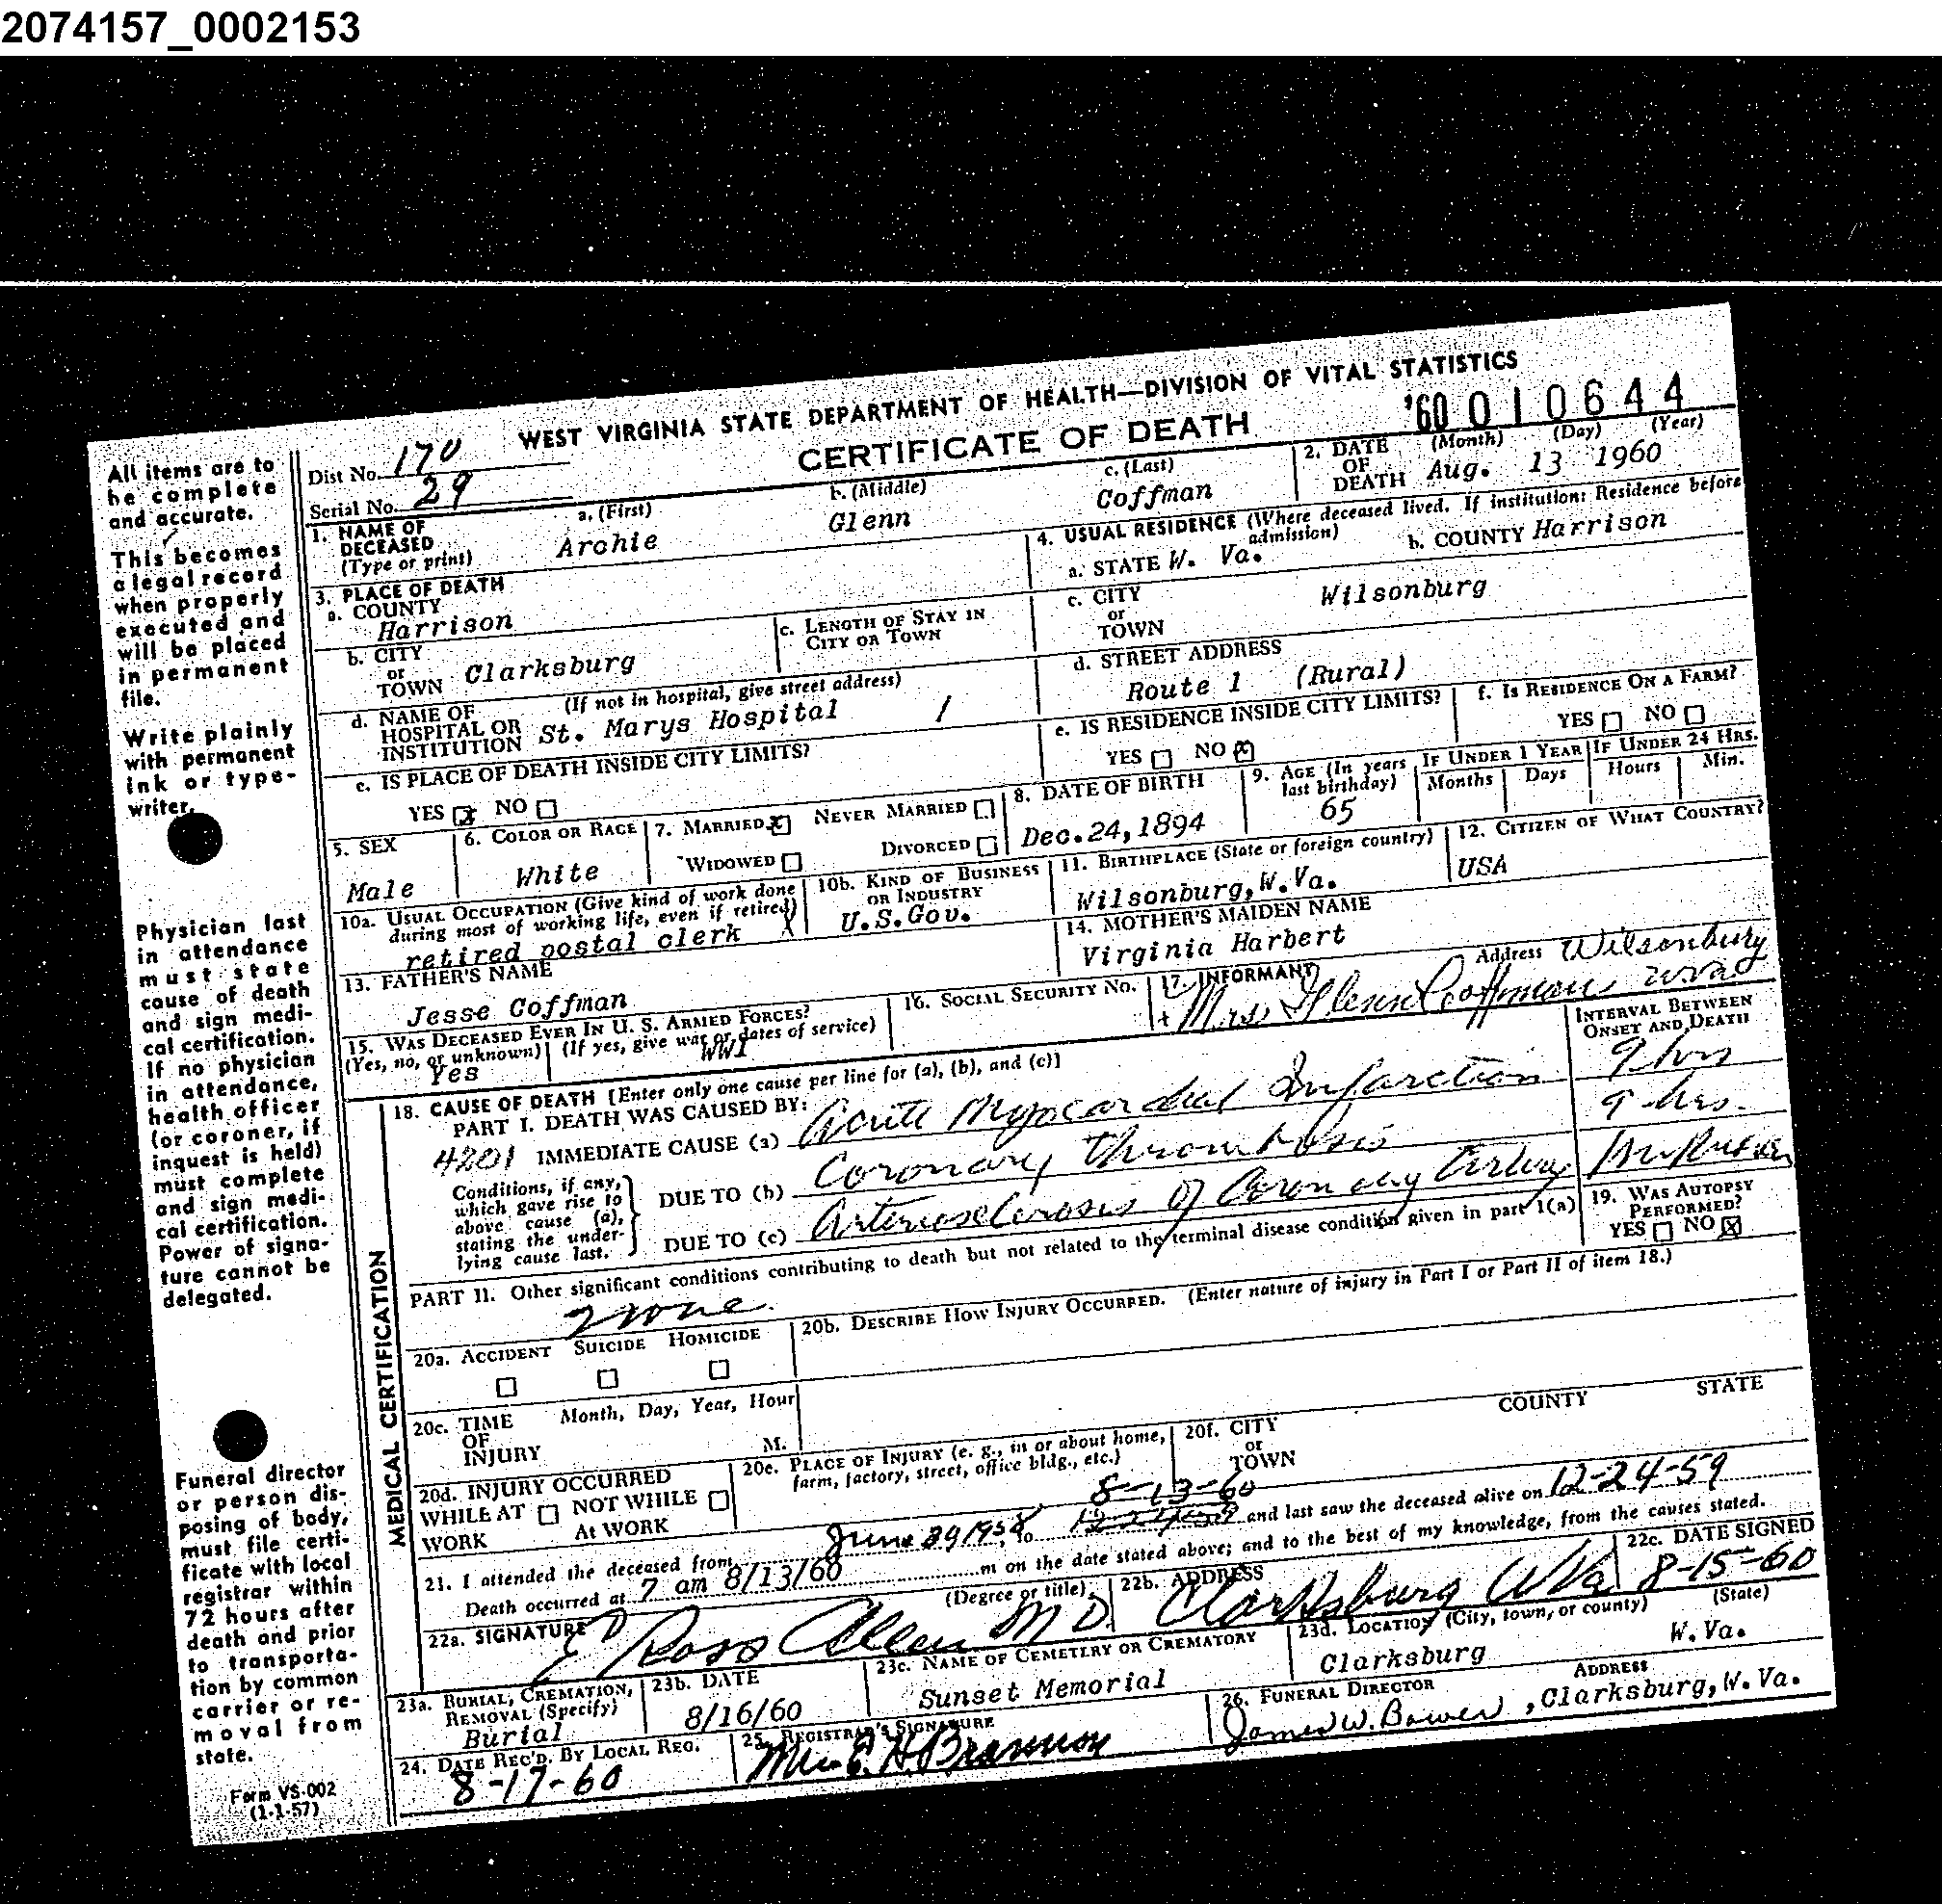 2074157_0002153
WEST VIRGINIA STATE DEPARTMENT OF HEALTH—DIVISION OF VITAL STATISTICS
CERTIFICATE OF DEATH
'60 010644
All items are to
be complete
and accurate.
This becomes
a legal record
when properly
executed and
will be placed
in permanent
file.
Write plainly
with permanent
ink or type-
writer.
Physician last
in attendance
must state
cause of death
and sign medi-
cal certification.
If no physician
in attendance,
health officer
(or coroner, if
inquest is held)
must complete
and sign medi-
cal certification.
Power of signa-
ture cannot be
delegated.
Funeral director
or person dis-
posing of body,
must file certi-
ficate with local
registrar within
72 hours after
death and prior
to transporta-
tion by common
carrier or re-
moval from
state.
Form VS-002
(1-1-57)
Dist No. 170
Serial No. 29
1. NAME OF DECEASED (Type or print)
a. (First) Archie
b. (Middle) Glenn
c. (Last) Coffman
2. DATE OF DEATH (Month) (Day) (Year) Aug. 13 1960
3. PLACE OF DEATH
a. COUNTY Harrison
b. CITY or TOWN Clarksburg
c. LENGTH OF STAY IN CITY OR TOWN
d. NAME OF HOSPITAL OR INSTITUTION (If not in hospital, give street address) St. Marys Hospital /
e. IS PLACE OF DEATH INSIDE CITY LIMITS?
YES X NO
4. USUAL RESIDENCE (Where deceased lived. If institution: Residence before admission)
a. STATE W. Va.
b. COUNTY Harrison
c. CITY or TOWN Wilsonburg
d. STREET ADDRESS
Route 1 (Rural)
e. IS RESIDENCE INSIDE CITY LIMITS?
YES NO X
f. IS RESIDENCE ON A FARM?
YES NO
5. SEX Male
6. COLOR OR RACE White
7. MARRIED X NEVER MARRIED
WIDOWED DIVORCED
8. DATE OF BIRTH Dec.24,1894
9. AGE (In years last birthday) 65
IF UNDER 1 YEAR Months Days
IF UNDER 24 HRS. Hours Min.
10a. USUAL OCCUPATION (Give kind of work done during most of working life, even if retired) retired postal clerk X
10b. KIND OF BUSINESS OR INDUSTRY U.S.Gov.
11. BIRTHPLACE (State or foreign country) Wilsonburg,W.Va.
12. CITIZEN OF WHAT COUNTRY? USA
13. FATHER'S NAME
Jesse Coffman
14. MOTHER'S MAIDEN NAME
Virginia Harbert
15. WAS DECEASED EVER IN U. S. ARMED FORCES?
(Yes, no, or unknown) Yes
(If yes, give war or dates of service) WW1
16. SOCIAL SECURITY NO.
17. INFORMANT Mrs Glenn Coffman Address Wilsonburg W Va
18. CAUSE OF DEATH [Enter only one cause per line for (a), (b), and (c)]
INTERVAL BETWEEN ONSET AND DEATH
PART I. DEATH WAS CAUSED BY:
4201 IMMEDIATE CAUSE (a) Acute Myocardial Infarction 9 hrs
Conditions, if any, which gave rise to above cause (a), stating the under-lying cause last.
DUE TO (b) Coronary Thrombosis 9 hrs.
DUE TO (c) Arteriosclerosis of Coronary Artery
PART II. Other significant conditions contributing to death but not related to the terminal disease condition given in part 1(a)
none.
19. WAS AUTOPSY PERFORMED?
YES NO X
MEDICAL CERTIFICATION
20a. ACCIDENT SUICIDE HOMICIDE
20b. DESCRIBE HOW INJURY OCCURRED. (Enter nature of injury in Part I or Part II of item 18.)
20c. TIME OF INJURY Month, Day, Year, Hour M.
20d. INJURY OCCURRED
WHILE AT WORK NOT WHILE AT WORK
20e. PLACE OF INJURY (e. g., in or about home, farm, factory, street, office bldg., etc.)
20f. CITY or TOWN COUNTY STATE
8-13-60
21. I attended the deceased from June 29 1958, to 12-24-59 and last saw the deceased alive on 12-24-59
Death occurred at 7 am 8/13/60 m on the date stated above; and to the best of my knowledge, from the causes stated.
22a. SIGNATURE (Degree or title) E Ross Allen M D.
22b. ADDRESS Clarksburg W Va
22c. DATE SIGNED 8-15-60
23a. BURIAL, CREMATION, REMOVAL (Specify) Burial
23b. DATE 8/16/60
23c. NAME OF CEMETERY OR CREMATORY
Sunset Memorial
23d. LOCATION (City, town, or county) (State)
Clarksburg W.Va.
24. DATE REC'D. BY LOCAL REG.
8-17-60
25. REGISTRAR'S SIGNATURE
Mrs. E. H. Brannon
26. FUNERAL DIRECTOR ADDRESS
James W. Bower , Clarksburg, W.Va.